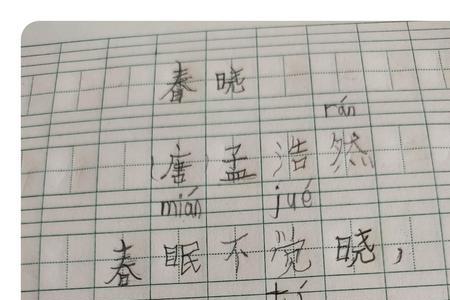 春晓
rán
(唐)孟浩然
mián jué
春眠不觉晓，